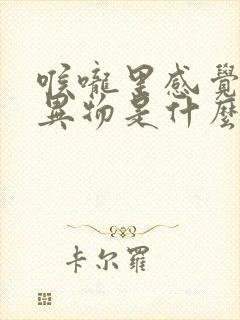 喉嚨里感覺
異物是什麼
卡尔羅